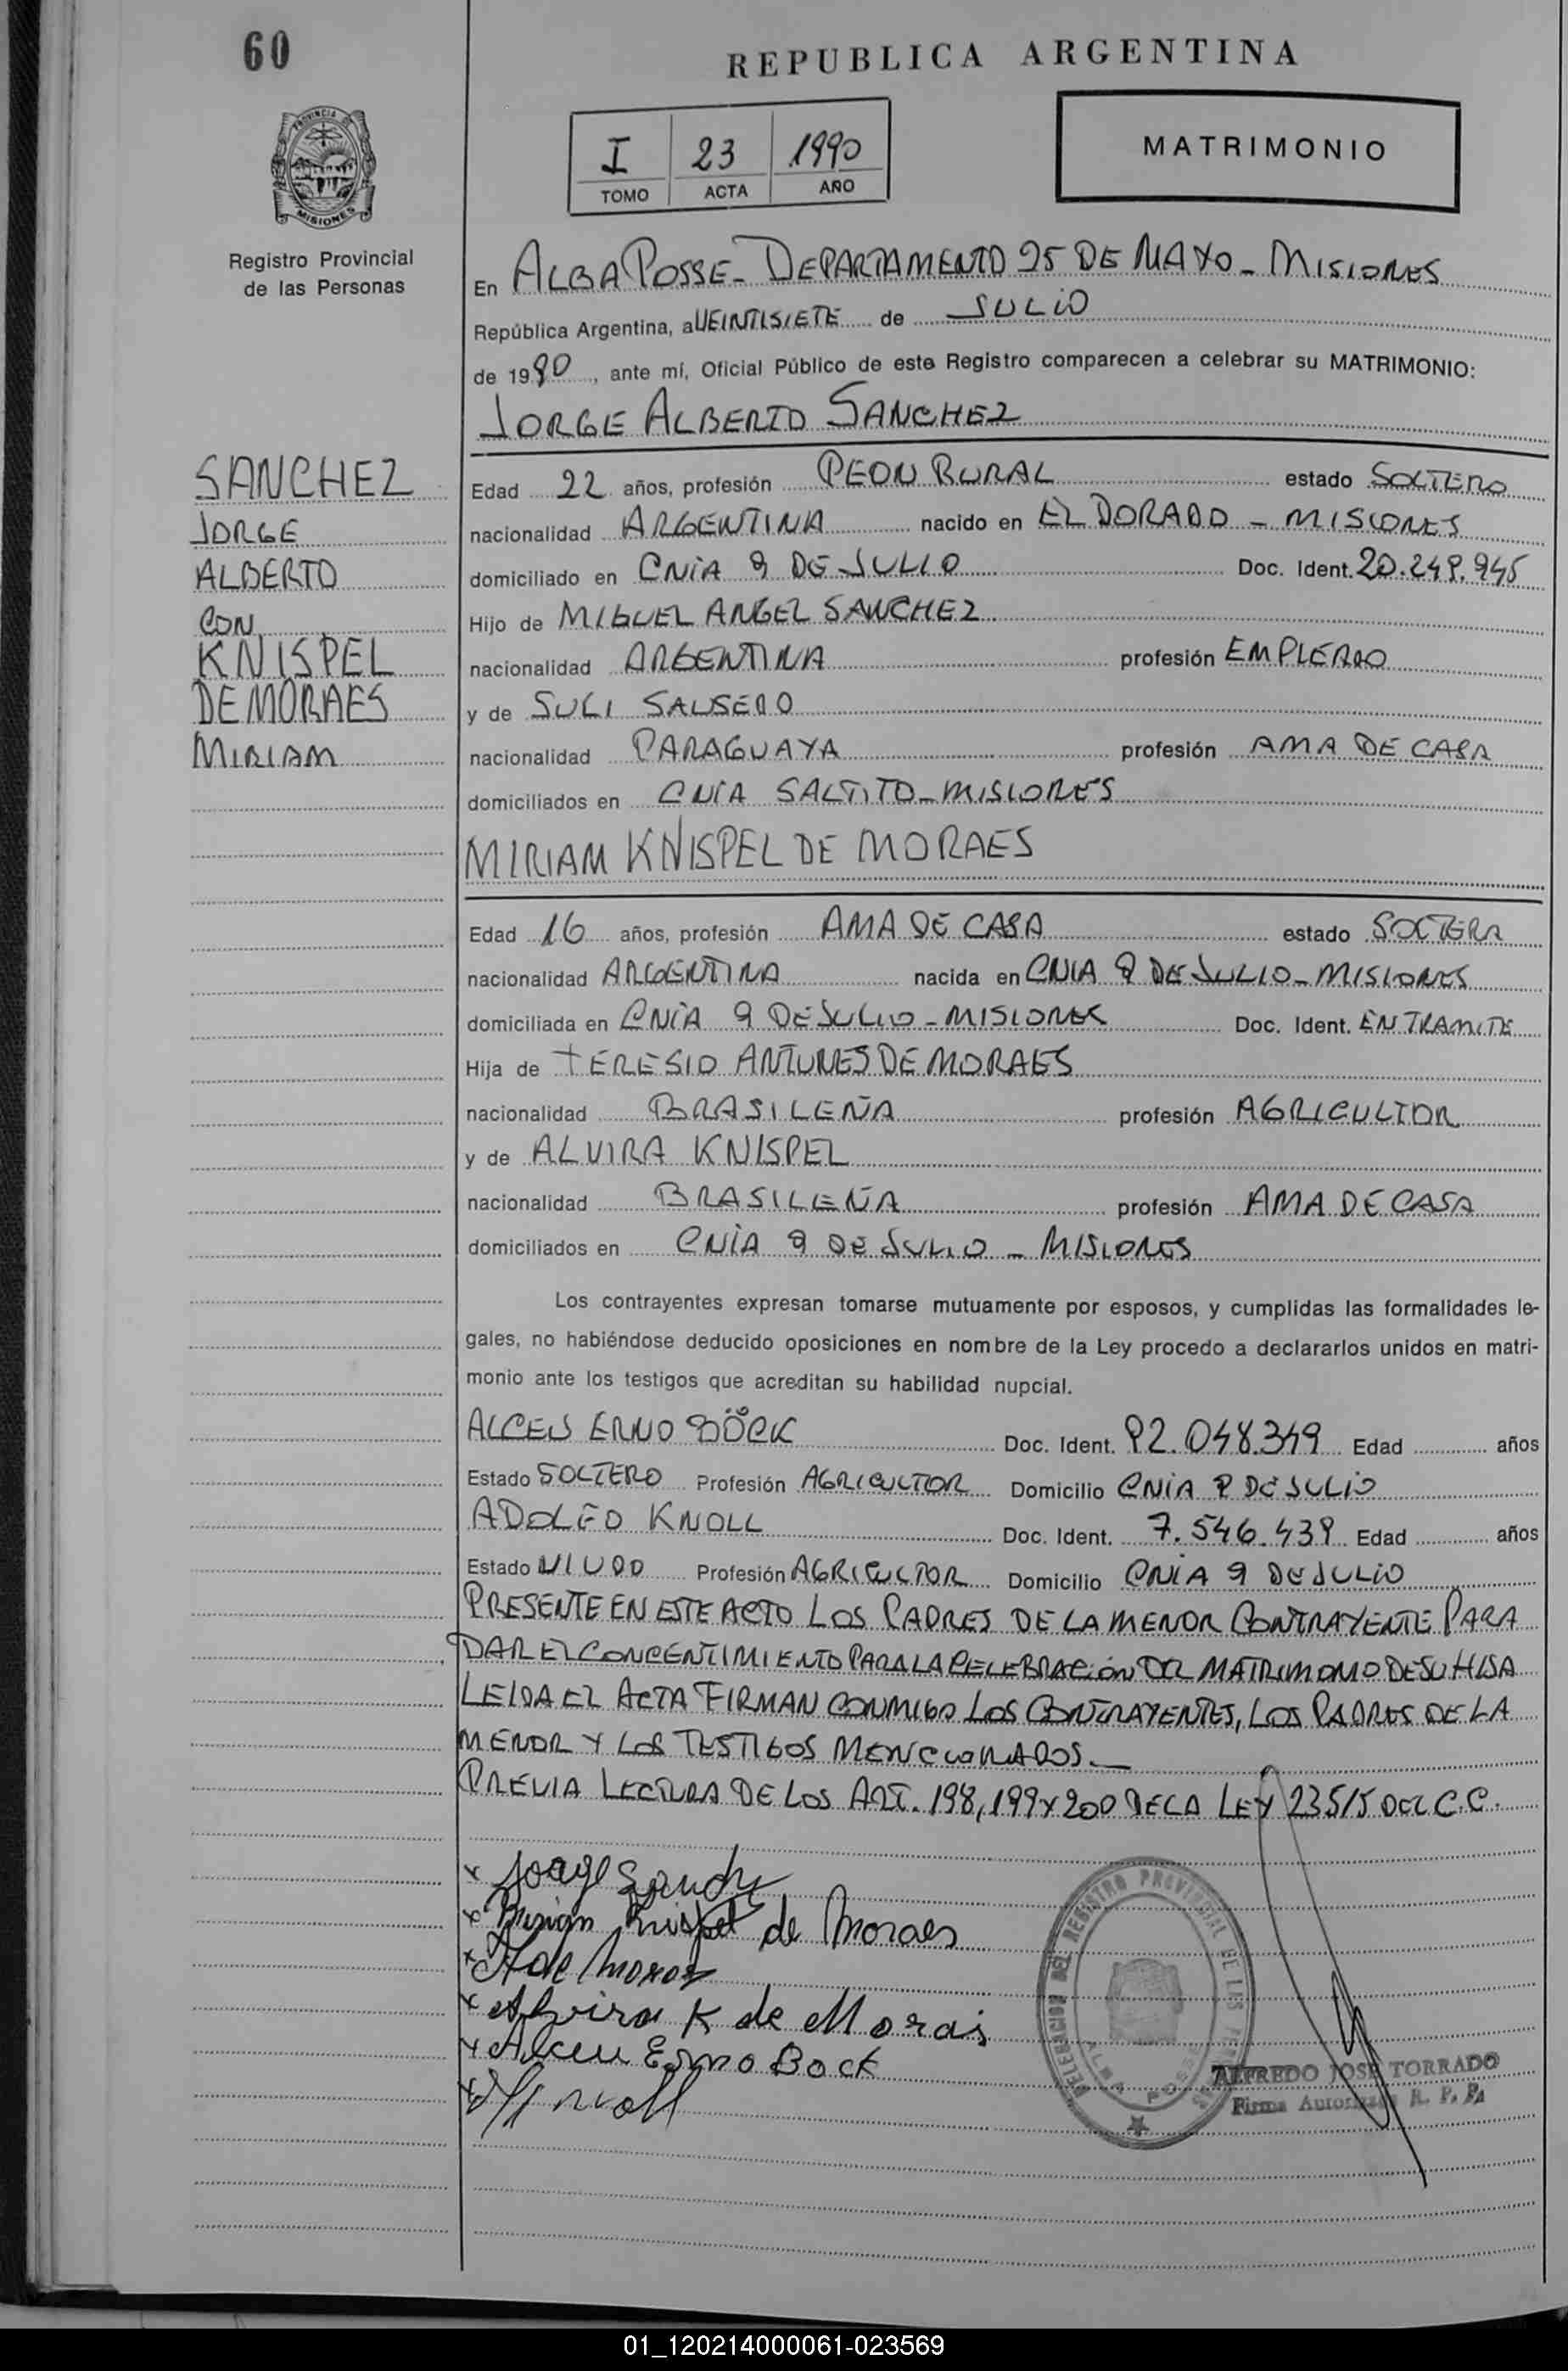 60
REPUBLICA ARGENTINA
PROVINCIA DE
MISIONES
I 23 1990
TOMO ACTA AÑO
MATRIMONIO
Registro Provincial
de las Personas
En ALBA POSSE - DEPARTAMENTO 25 DE MAYO - MISIONES
República Argentina, a VEINTISIETE de JULIO
de 1990, ante mí, Oficial Público de este Registro comparecen a celebrar su MATRIMONIO:
JORGE ALBERTO SANCHEZ
SANCHEZ
JORGE
ALBERTO
CON
KNISPEL
DE MORAES
MIRIAM
Edad 22 años, profesión PEON RURAL estado SOLTERO
nacionalidad ARGENTINA nacido en EL DORADO - MISIONES
domiciliado en CNIA 9 DE JULIO Doc. Ident. 20.249.945
Hijo de MIGUEL ANGEL SANCHEZ
nacionalidad ARGENTINA profesión EMPLEADO
y de SULI
nacionalidad PARAGUAYA profesión AMA DE CASA
domiciliados en CNIA SALTITO - MISIONES
MIRIAM KNISPEL DE MORAES
Edad 16 años, profesión AMA DE CASA estado SOLTERA
nacionalidad ARGENTINA nacida en CNIA 9 DE JULIO - MISIONES
domiciliada en CNIA 9 DE JULIO - MISIONES Doc. Ident. EN TRAMITE
Hija de TERESIO ANTUNES DE MORAES
nacionalidad BRASILEÑA profesión AGRICULTOR
y de ALVIRA KNISPEL
nacionalidad BRASILEÑA profesión AMA DE CASA
domiciliados en CNIA 9 DE JULIO - MISIONES
Los contrayentes expresan tomarse mutuamente por esposos, y cumplidas las formalidades le-
gales, no habiéndose deducido oposiciones en nombre de la Ley procedo a declararlos unidos en matri-
monio ante los testigos que acreditan su habilidad nupcial.
ALCEU ERNO BÖCK Doc. Ident. 92.048.349 Edad años
Estado SOLTERO Profesión AGRICULTOR Domicilio CNIA 9 DE JULIO
ADOLFO KNOLL Doc. Ident. 7.546.439 Edad años
Estado VIUDO Profesión AGRICULTOR Domicilio CNIA 9 DE JULIO
PRESENTE EN ESTE ACTO LOS PADRES DE LA MENOR CONTRAYENTE PARA
DAR EL CONCENTIMIENTO PARA LA CELEBRACIÓN DEL MATRIMONIO DE SU HIJA
LEIDA EL ACTA FIRMAN CONMIGO LOS CONTRAYENTES, LOS PADRES DE LA
MENOR Y LOS TESTIGOS MENCIONADOS.
PREVIA LECTURA DE LOS ART. 198, 199 Y 200 DE LA LEY 23515 DEL C.C.
x Jorge Sanchz
x Miriam Knispel de Moraes
x A de Moraes
x Alvira K de Morais
x Alceu Erno Bock
x Knoll
DELEGACION DEL REGISTRO PROVINCIAL DE LAS
ALBA POSSE
ALFREDO JOSE TORRADO
Firma Autorizada R. P. P.
01_120214000061-023569